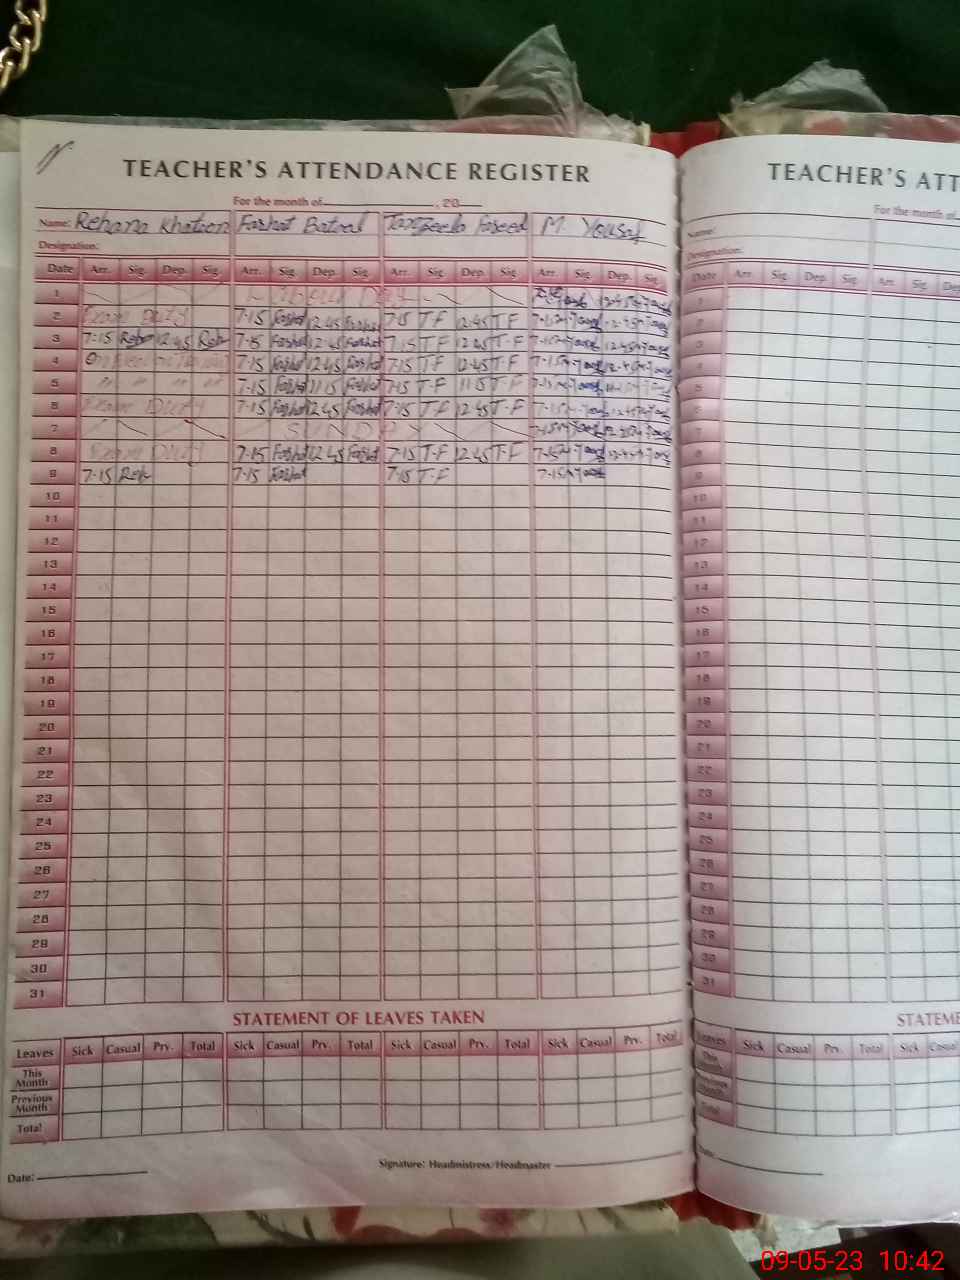 TEACHER'S ATTENDANCE REGISTER
For the month of , 20
Name: Rehana Khatoon Farhat Batool Tanzeela Fareed M. Yousaf
Designation:
Date Arr. Sig. Dep. Sig. Arr. Sig. Dep. Sig. Arr. Sig. Dep. Sig. Arr. Sig. Dep. Sig.
1 Labour Day
2 Exam Duty 7-15 Farhat 12 45 Farhat 7-15 T-F 12-45 T-F
3 7-15 Reh 12 45 Reh 7-15 Farhat 12 45 Farhat 7-15 T-F 12 45 T-F
4 7-15 Farhat 12 45 Farhat 7-15 T-F 12-45 T-F
5 " " " " 7-15 Farhat 11 15 Farhat 7-15 T-F 11-15 T-F
6 Exam Duty 7-15 Farhat 12 45 Farhat 7-15 T-F 12 45 T-F
7 SUNDAY
8 Exam Duty 7-15 Farhat 12 45 Farhat 7-15 T-F 12 45 T-F
9 7-15 Reh 7-15 Farhat 7-15 T-F 7-15
10
11
12
13
14
15
16
17
18
19
20
21
22
23
24
25
26
27
28
29
30
31
STATEMENT OF LEAVES TAKEN
Leaves Sick Casual Prv. Total Sick Casual Prv. Total Sick Casual Prv. Total Sick Casual Prv. Total
This Month
Previous Month
Total
Signature: Headmistress/Headmaster
Date:
TEACHER'S ATT
For the month of
Name:
Designation:
Date Arr. Sig. Dep. Sig. Arr. Sig. De
1
2
3
4
5
6
7
8
9
10
11
12
13
14
15
16
17
18
19
20
21
22
23
24
25
26
27
28
29
30
31
STATEME
Leaves Sick Casual Prv. Total Sick Casual
This Month
Previous Month
Total
Date:
09-05-23 10:42